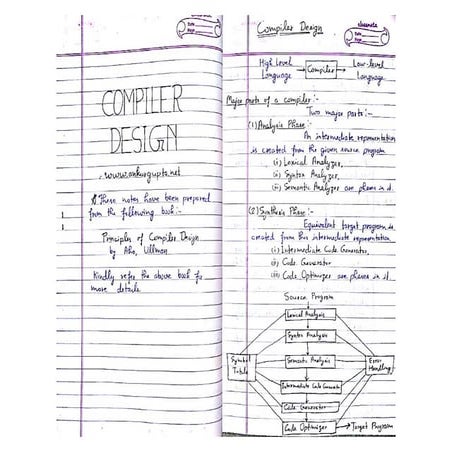 COMPILER
DESIGN
www.ankurgupta.net
These notes have been prepared
from the following book:-
Principles of Compiler Design
by Aho, Ullman
Kindly refer the above book for
more details.
classmate
Date
Page
Compiler Design
classmate
Date
Page
High Level
Language
Compiler
Low-level
Language
Major parts of a compiler:-
Two major parts:-
(1) Analysis Phase:-
An intermediate representation
is created from the given source program
(i) Lexical Analyzer,
(ii) Syntax Analyzer,
(iii) Semantic Analyzer are phases in it.
(2) Synthesis Phase:-
Equivalent target program is
created from this intermediate representation.
(i) Intermediate Code Generator,
(ii) Code Generator
(iii) Code Optimizer are phases in it.
Source Program
Lexical Analysis
Syntax Analysis
Symbol
Table
Semantic Analysis
Error
Handling
Intermediate Code Generator
Code Generator
Code Optimizer
Target Program